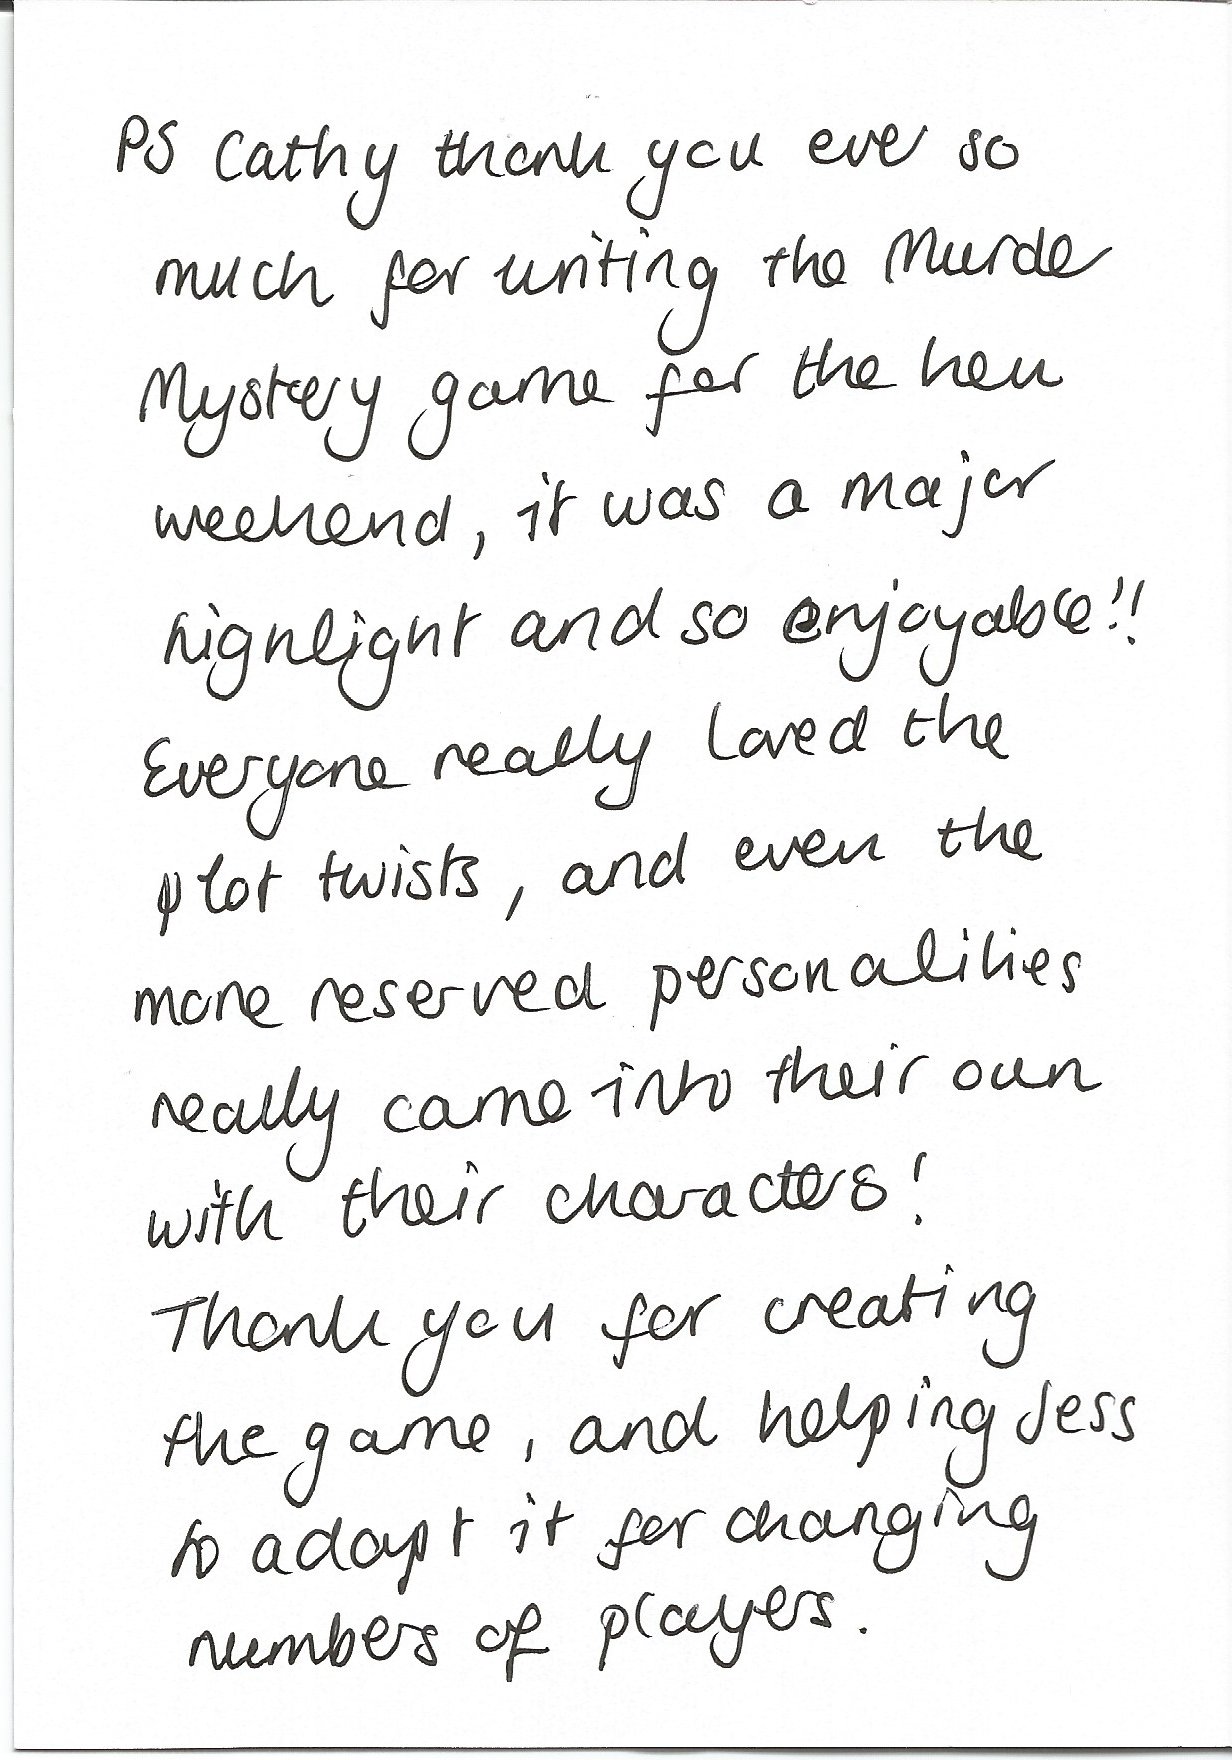 PS Cathy thank you ever so
much for writing the Murder
Mystery game for the hen
weekend, it was a major
highlight and so enjoyable!!
Everyone really loved the
plot twists, and even the
more reserved personalities
really came into their own
with their characters!
Thank you for creating
the game, and helping Jess
to adapt it for changing
numbers of players.